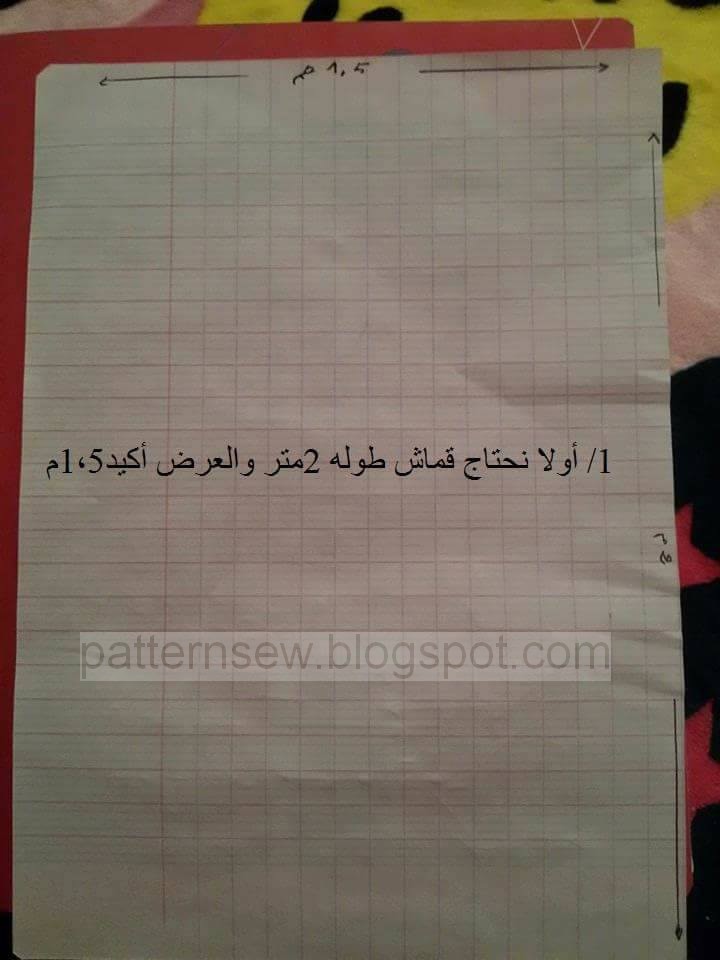 1,5 م
1/ أولا نحتاج قماش طوله 2متر والعرض أكيد1،5م
2 م
patternsew.blogspot.com